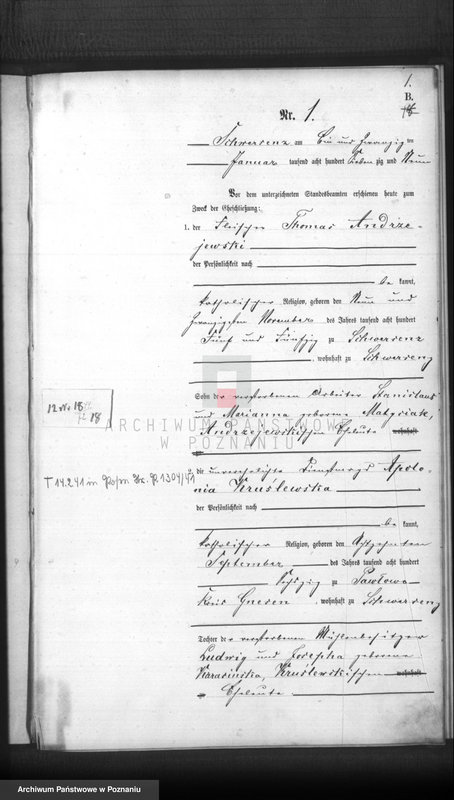 1.
B.
18
Nr. 1.
Schwersenz am Ein und zwanzig ten
Januar tausend acht hundert sieben zig und Neun
Vor dem unterzeichneten Standesbeamten erschienen heute zum
Zweck der Eheschließung:
1. der Fleischer Thomas Andrze-
jewski
der Persönlichkeit nach
be kannt,
katholischer Religion, geboren den Neun und
zwanzigsten November des Jahres tausend acht hundert
Fünf und Fünfzig zu Schwersenz
, wohnhaft zu Schwersenz
Sohn der verstorbenen Arbeiter Stanislaus
und Marianna geborene Matysiak,
Andrzejewskischen Eheleute wohnhaft
zu
12 No 18
18
† 14.2.41 in Posen
2. die unverehelichte Dienstmagd Apolo-
nia Kruślewska
der Persönlichkeit nach
be kannt,
katholischer Religion, geboren den Achtzehnten
September des Jahres tausend acht hundert
Sechszig zu Pawłowo
Kreis Gnesen , wohnhaft zu Schwersenz
Tochter der verstorbenen Mühlenbesitzer
Ludwig und Josepha geborene
Karasinska, Kruslewskischen wohnhaft
zu Eheleute
ARCHIWUM PAŃSTWOWE
W POZNANIU
Archiwum Państwowe w Poznaniu
Archiwum Państwowe w Poznaniu